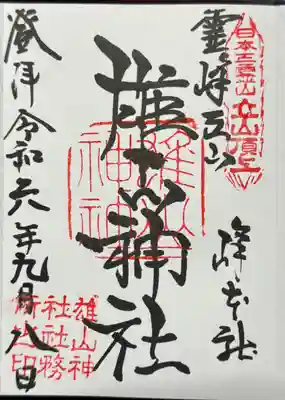 日本三霊山 立山頂上
靈峰立山
峰本社
雄山神社
雄山
神社
登拝 令和六年九月八日
雄山神
社社務
所之印